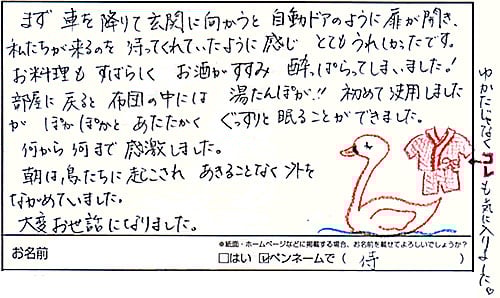 まず 車を降りて玄関に向かうと 自動ドアのように扉が開き、
私たちが来るのを 待ってくれていたように感じ とてもうれしかったです。
お料理も すばらしく お酒がすすみ 酔っぱらってしまいました！
部屋に戻ると 布団の中には 湯たんぽが！！ 初めて使用しました
が ぽかぽかと あたたかく ぐっすりと眠ることができました。
何から何まで感激しました。
朝は、鳥たちに起こされ あきることなく外を
ながめていました。
大変お世話になりました。
ゆかたじゃなくコレも気に入りました。
お名前
※紙面・ホームページなどに掲載する場合、お名前を載せてよろしいでしょうか？
□はい ☑ペンネームで（ 侍 ）